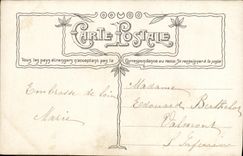 CARTE POSTALE
Tous les pays étrangers n'acceptent pas la Correspondance au verso. Se renseigner à la poste
Embrasse de loin
Marie
Madame
Edouard Berthelot
Valmont
S Inférieure